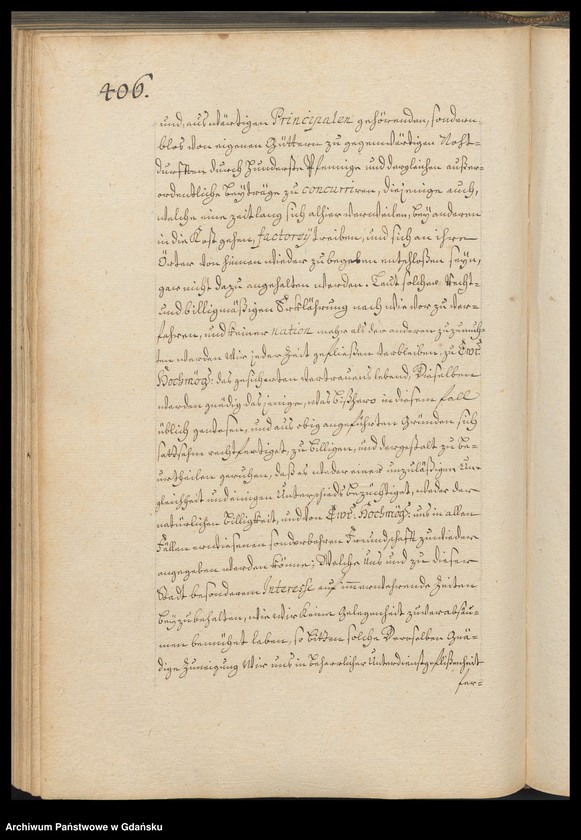 406.
und, auswärtigen Principalen gehörenden, sondern
blos von eigenen Güttern zu gegenwärtigen Noht-
durfften durch Hunderste Pfennige und dergleichen außer-
ordentliche beyträge zu concurriren, diejenige auch,
welche eine zeitlang sich alhier verweilen, bey anderen
in die Kost gehen, factorey treiben, und sich an ihre
Örter von hinnen wieder zu begeben entschloßen seyn,
gar nicht dazu angehalten werden. Laut solcher Recht-
und billigmäßigen Erklährung nach wie vor zu ver-
fahren, und keiner nation mehr als der anderen zuzumuh-
ten werden Wir jeder Zeit gefließen verbleiben, zu Ewr.
Hochmög: das gesicherten vertrauens lebend, Dieselben
werden gnädig dasjenige, was bißhero in diesem fall
üblich gewesen, und aus obig angeführten Gründen sich
sattsahm rechtfertiget, zu billigen, und dergestalt zu be-
urtheilen geruhen, daß es weder einer unzuläßigen Un-
gleichheit und einigen Unterschieds bezüchtiget, weder der
natürlichen billigkeit, und von Ewr. Hochmög: uns in allen
Fällen erwiesenen sonderbahren Freundschafft zuwieder
angegeben werden könne; Welche uns und zu dieser
Stadt besonderem Interesse auf immerwehrende Zeiten
beyzubehalten, wie wir keine Gelegenheit zuverabsäu-
men bemühet leben, so bitten solche Deroselben Gnä-
dige Zuneigung Wir uns in beharrlicher Unterdienstgeflißenheit
fer-
Archiwum Państwowe w Gdańsku